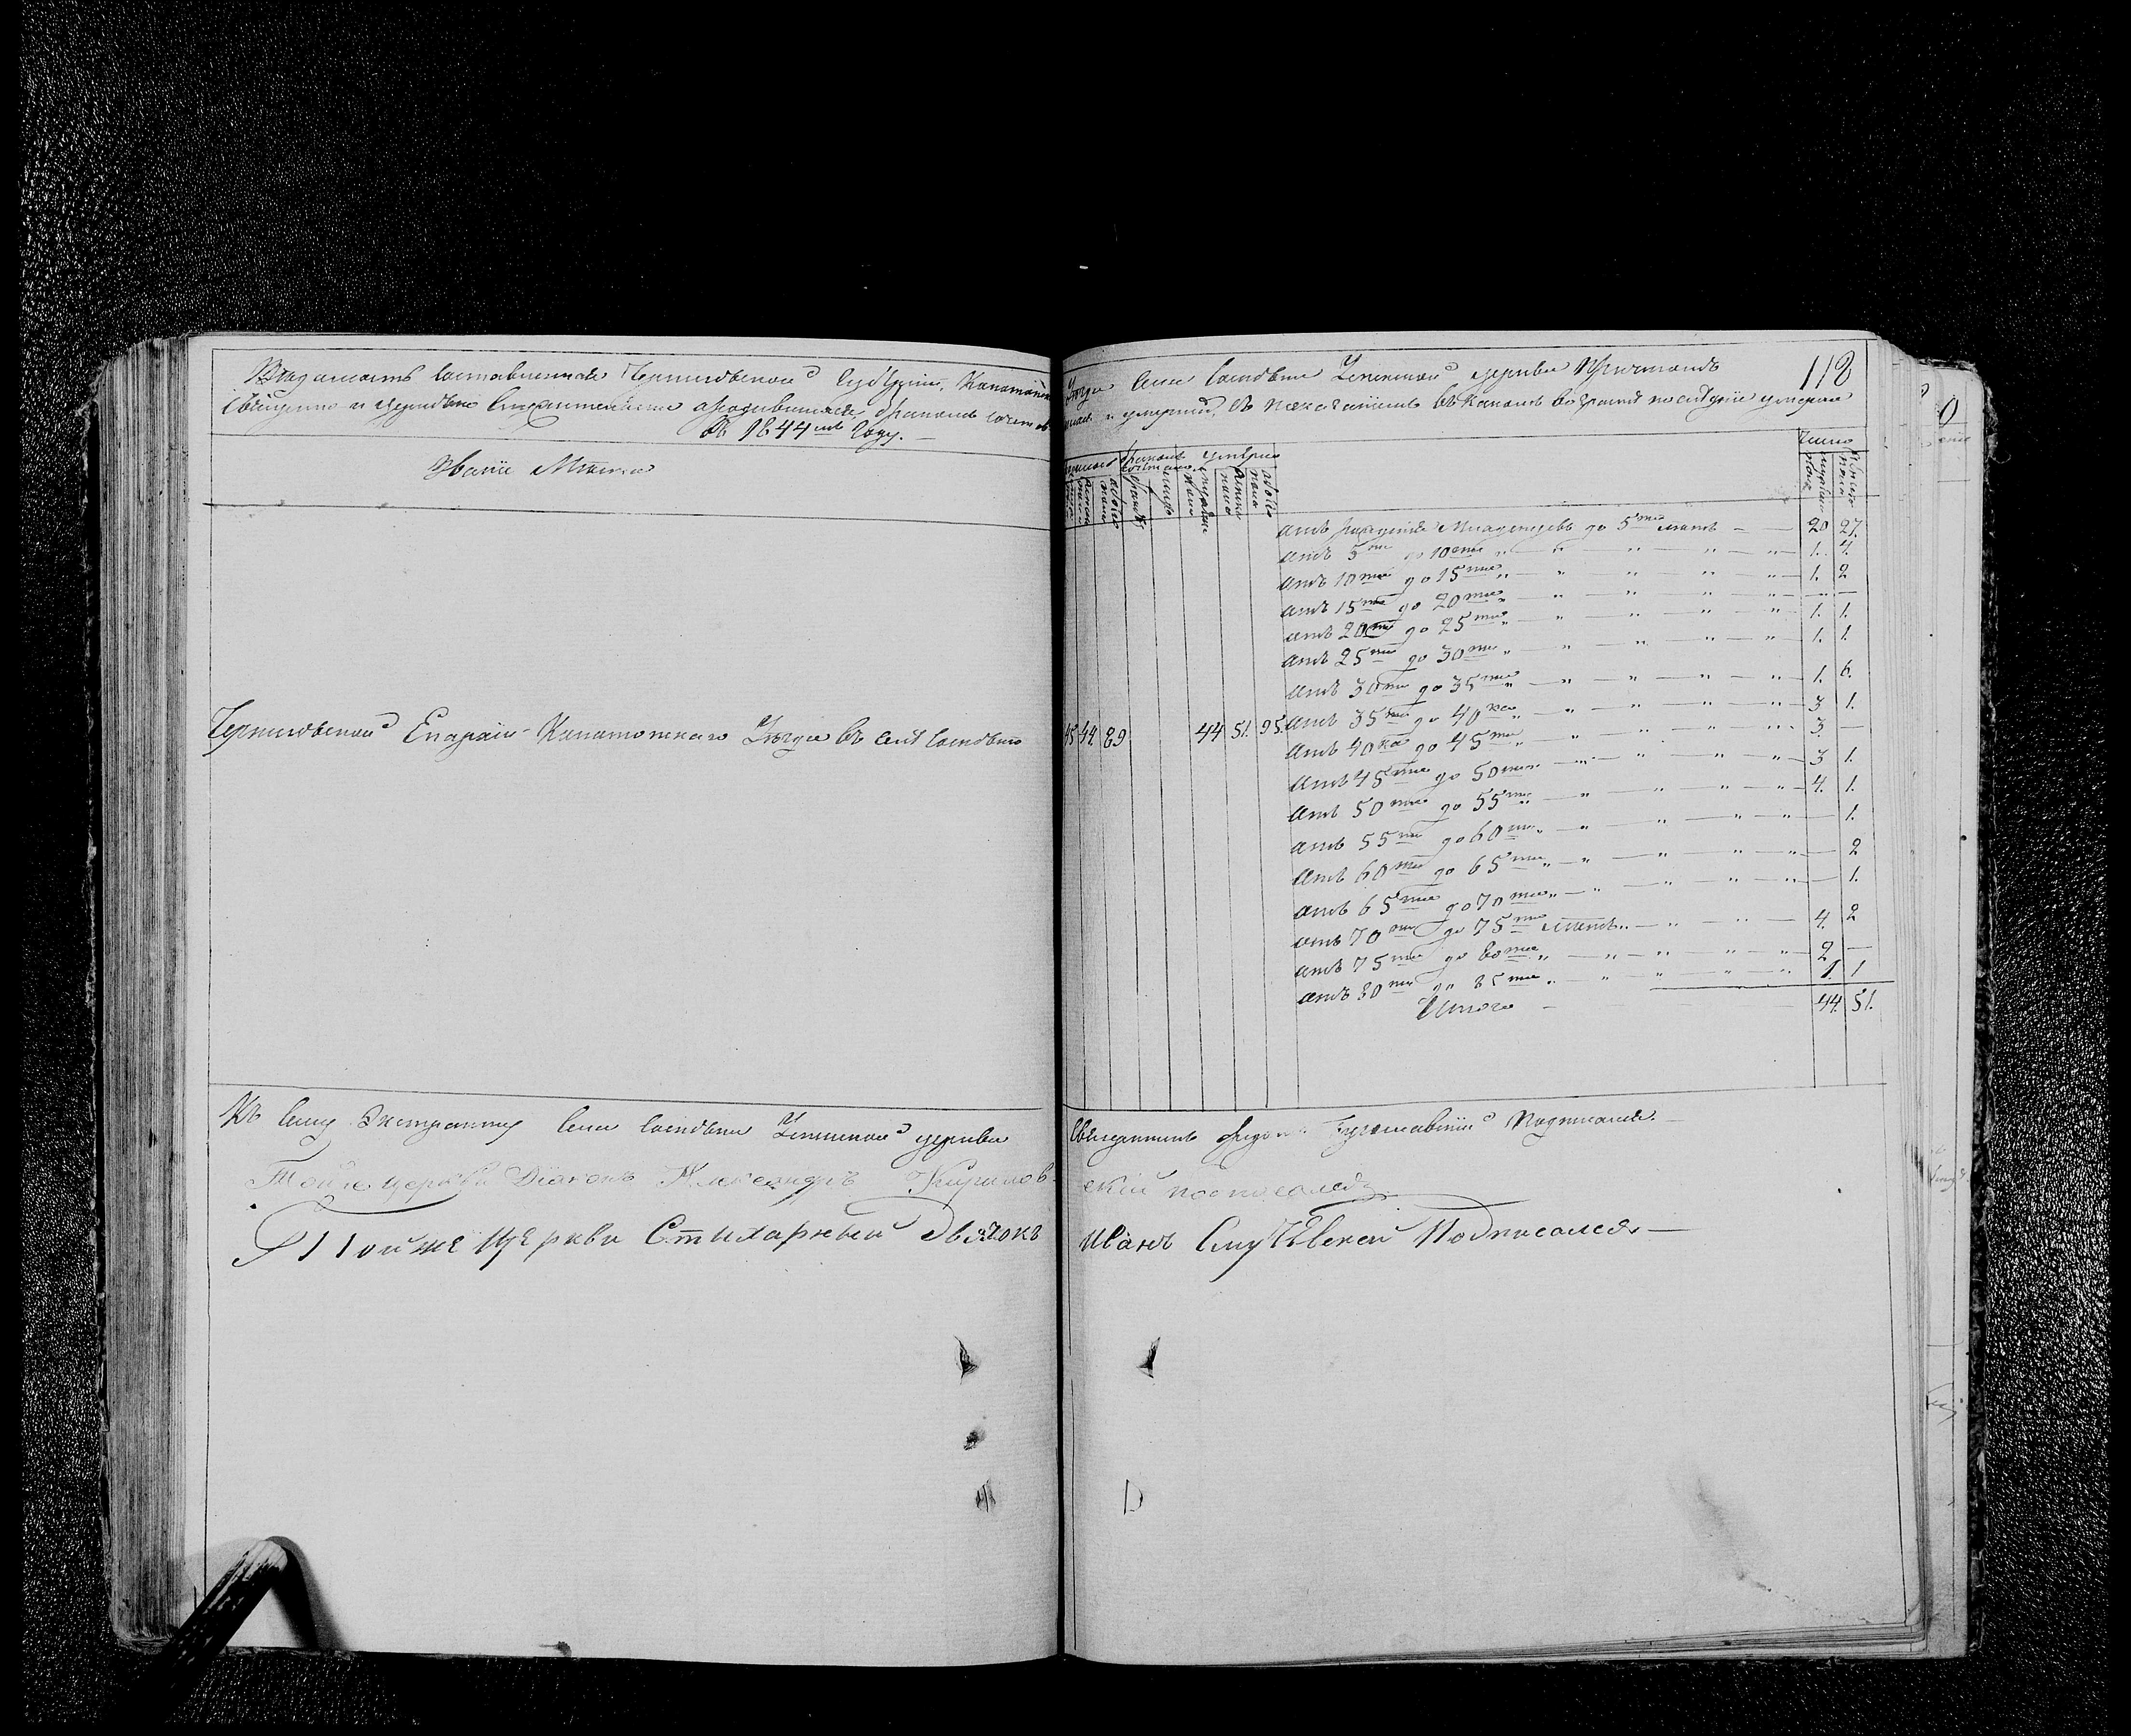 Ведомость составленная Черниговской Губернии, Конотопскаго
Уезда села Сосновки Успенской церкви Причтомъ
118
Священно и церковно Служительскими о родившихся, бракомъ сочетав
шихся и умершихъ, съ показаниемъ въ какомъ возрасте последние умерли
въ 1844мъ Году.
Звание Места
Родилось
Бракомъ сочетано
Умерло
Число
мужеска пола
женска пола
обоего пола
Черниговской Епархии Конотопскаго Уезда въ селе Сосновке
45 44 89
44 51. 95.
Отъ рождения младенцевъ до 5ти летъ — 20 27.
Отъ 5ти до 10ти „ — „ — „ — „ — „ — 1. 4.
Отъ 10ти до 15ти „ — „ — „ — „ — „ — 1. 2
Отъ 15ти до 20ти „ — „ — „ — „ — „ — — —
Отъ 20ти до 25ти „ — „ — „ — „ — „ — 1. 1.
Отъ 25ти до 30ти „ — „ — „ — „ — „ — 1. 1.
Отъ 30ти до 35ти „ — „ — „ — „ — „ — 1. 6.
Отъ 35ти до 40ка „ — „ — „ — „ — „ — 3 1.
Отъ 40ка до 45ти „ — „ — „ — „ — „ — 3. —
Отъ 45ти до 50ти „ — „ — „ — „ — „ — 3 1.
Отъ 50ти до 55ти „ — „ — „ — „ — „ — 4. 1.
Отъ 55ти до 60ти „ — „ — „ — „ — „ — — 1.
Отъ 60ти до 65ти „ — „ — „ — „ — „ — — 2
Отъ 65ти до 70ти „ — „ — „ — „ — „ — — 1.
Отъ 70ти до 75ти летъ „ — „ — „ — 4. 2
Отъ 75ти до 80ти „ — „ — „ — „ — „ — 2 —
Отъ 80ти до 85ти „ — „ — „ — „ — „ 1. 1
Итого — 44. 51.
Къ сему Экстракту села Сосновки Успенской церкви
Священникъ Подписался. —
Тойже церкви Диаконъ Александръ
Тойже Церкви Стихарный Дьячокъ
Иванъ Подписался —